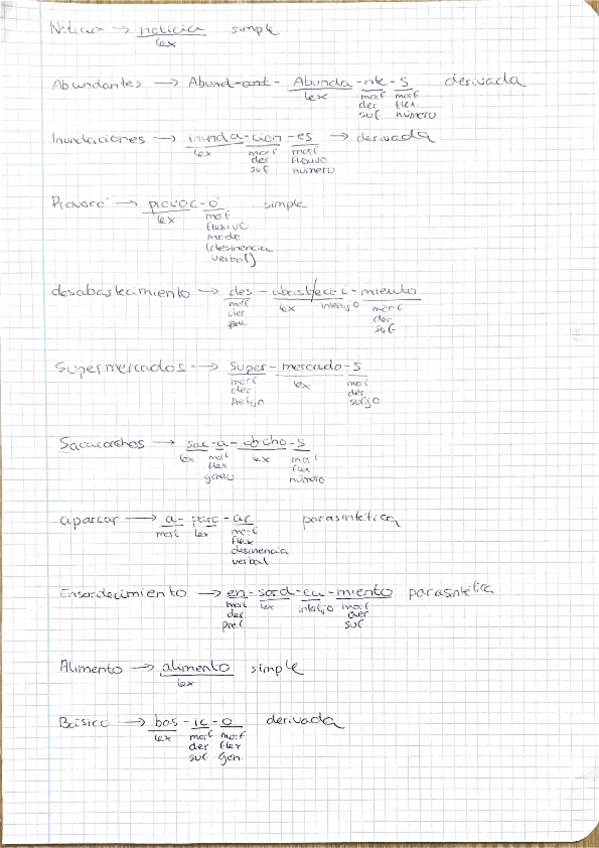 Noticia → noticia simple
lex
Abundantes → Abund-ant- Abunda-nte-s derivada
lex morf morf
der flex
suf número
Inundaciones → inunda-cion-es → derivada
lex morf morf
der flexivo
suf número
Provocó → provoc-ó simple
lex morf
flexivo
modo
(desinencia
verbal)
desabastecimiento → des-abast/eci-miento
morf lex interfijo morf
der der
suf
Supermercados → super-mercado-s
morf lex morf
der der
prefijo sufijo
Sacacorchos → sac-a-corcho-s
lex morf lex morf
flex flex
género número
aparcar → a-parc-ar parasintética
morf lex morf
flex
desinencia
verbal
Ensordecimiento → en-sord-eci-miento parasintética
morf lex interfijo morf
der der
pref suf
Alimento → alimento simple
lex
Básico → bas-ic-o derivada
lex morf morf
der flex
suf gen